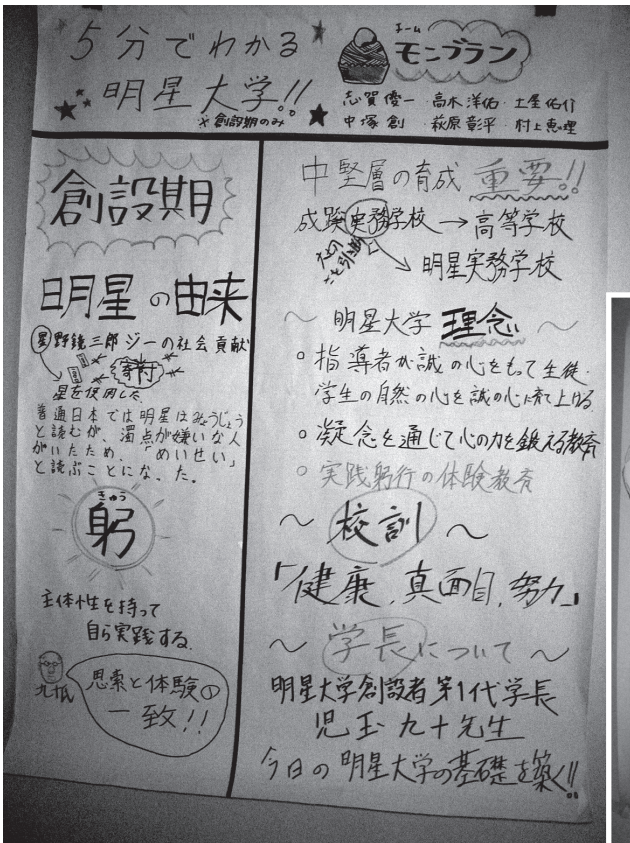 5分でわかる
明星大学!!
※創設期のみ
チーム
モンブラン
志賀優一 高木洋佑 土屋佑介
中塚創 萩原彰平 村上恵理
創設期
明星の由来
星野錢三郎ジーの社会貢献
寄付
星を使用した
普通日本では明星はみょうじょう
と読むが、濁点が嫌いな人
がいたため、「めいせい」
と読ぶことになった。
きゅう
躬
主体性を持って
自ら実践する.
思索と体験の
一致!!
中堅層の育成 重要!!
成蹊実務学校→高等学校
明星実務学校
～明星大学 理念～
○指導者が誠の心をもって生徒・
学生の自然の心を誠の心に育て上げる
○凝念を通じて心の力を鍛える教育
○実践躬行の体験教育
～校訓～
「健康、真面目、努力」
～学長について～
明星大学創設者 第1代学長
児玉九十先生
今日の明星大学の基礎を築く!!